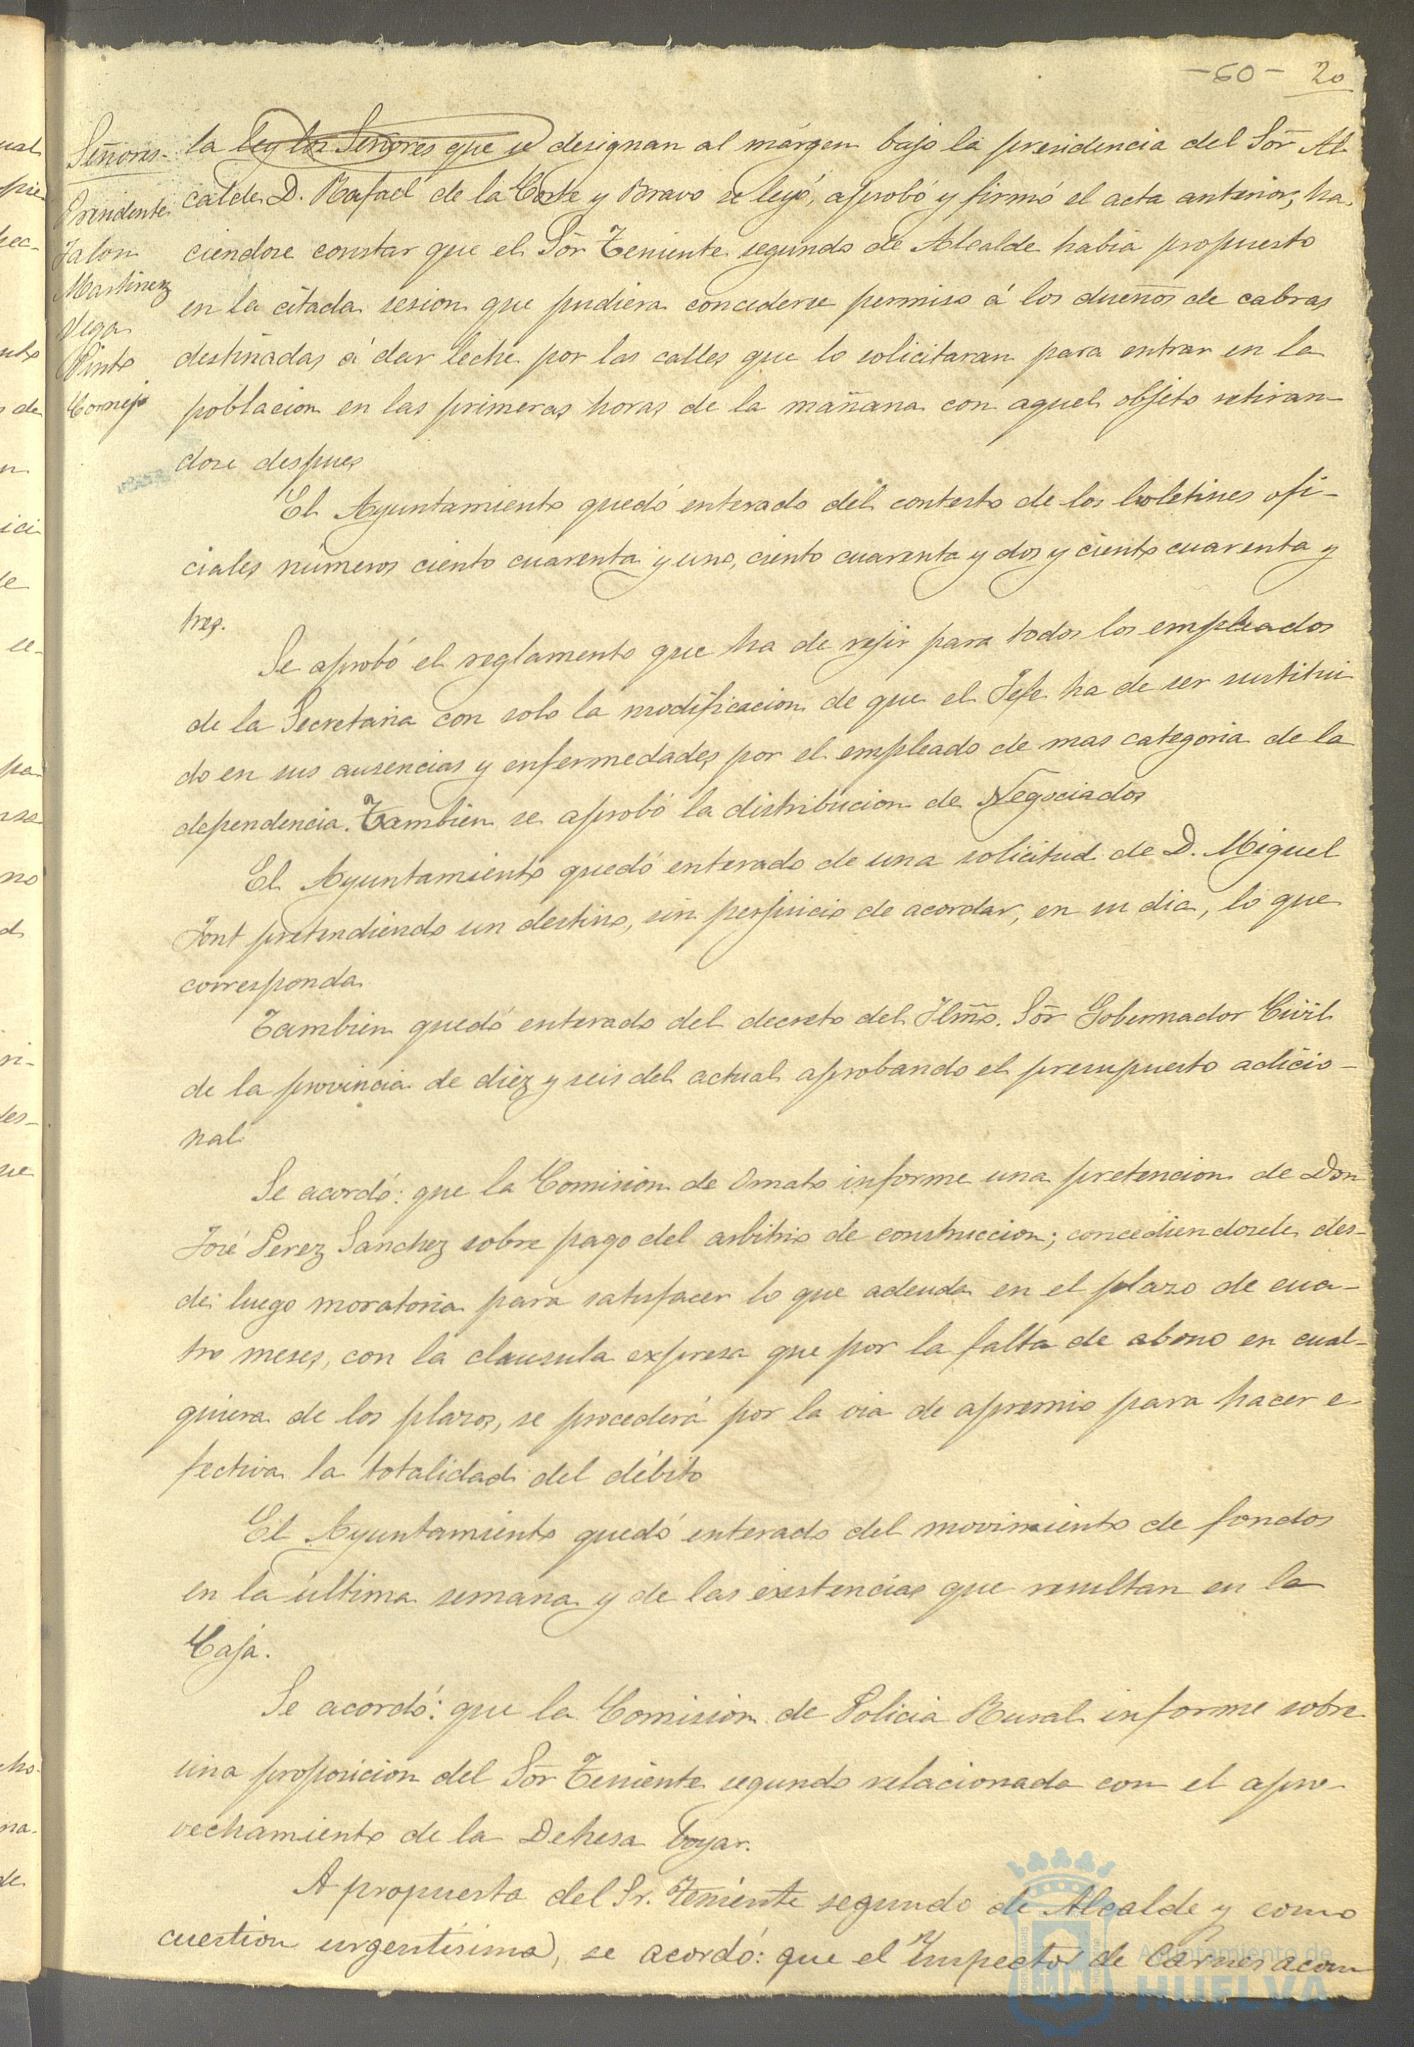 -60- 20
Señores
Presidente
Jalon
Martinez
Vega
Pinto
Cornejo
la ley los Señores que se designan al márgen bajo la presidencia del Sõr Al
calde D. Rafael de la Corte y Bravo se leyó, aprobó y firmó el acta anterior, ha
ciendose constar que el Sõr Teniente segundo de Alcalde habia propuesto
en la citada sesion que pudiera concederse permiso á los dueños de cabras
destinadas á dar leche por las calles que lo solicitaran para entrar en la
poblacion en las primeras horas de la mañana con aquel objeto retiran-
dose despues
El Ayuntamiento quedó enterado del contesto de los boletines ofi-
ciales números ciento cuarenta y uno, ciento cuarenta y dos y ciento cuarenta y
tres.
Se aprobó el reglamento que ha de regir para todos los empleados
de la Secretaria con solo la modificacion de que el Jefe ha de ser sustitui
do en sus ausencias y enfermedades por el empleado de mas categoria de la
dependencia. Tambien se aprobó la distribucion de Negociados
El Ayuntamiento quedó enterado de una solicitud de D. Miguel
Font pretendiendo un destino, sin perjuicio de acordar, en su dia, lo que
corresponda
Tambien quedó enterado del decreto del Ilmõ. Sõr Gobernador Civil
de la provincia de diez y seis del actual aprobando el presupuesto adicio-
nal
Se acordó: que la Comision de Ornato informe una pretencion de Don
José Perez Sanchez sobre pago del arbitrio de construccion; concediendosele des-
de luego moratoria para satisfacer lo que adeuda en el plazo de cua-
tro meses, con la clausula expresa que por la falta de abono en cual-
quiera de los plazos, se procederá por la via de apremio para hacer e-
fectiva la totalidad del débito
El Ayuntamiento quedó enterado del movimiento de fondos
en la última semana y de las existencias que resultan en la
Caja.
Se acordó: que la Comision de Policia Rural informe sobre
una proposicion del Sõr Teniente segundo relacionada con el apro-
vechamiento de la Dehesa boyar.
A propuesta del Sr. Teniente segundo de Alcalde y como
cuestion urgentisima, se acordó: que el Inspector de Carnes acom
Ayuntamiento de
HUELVA